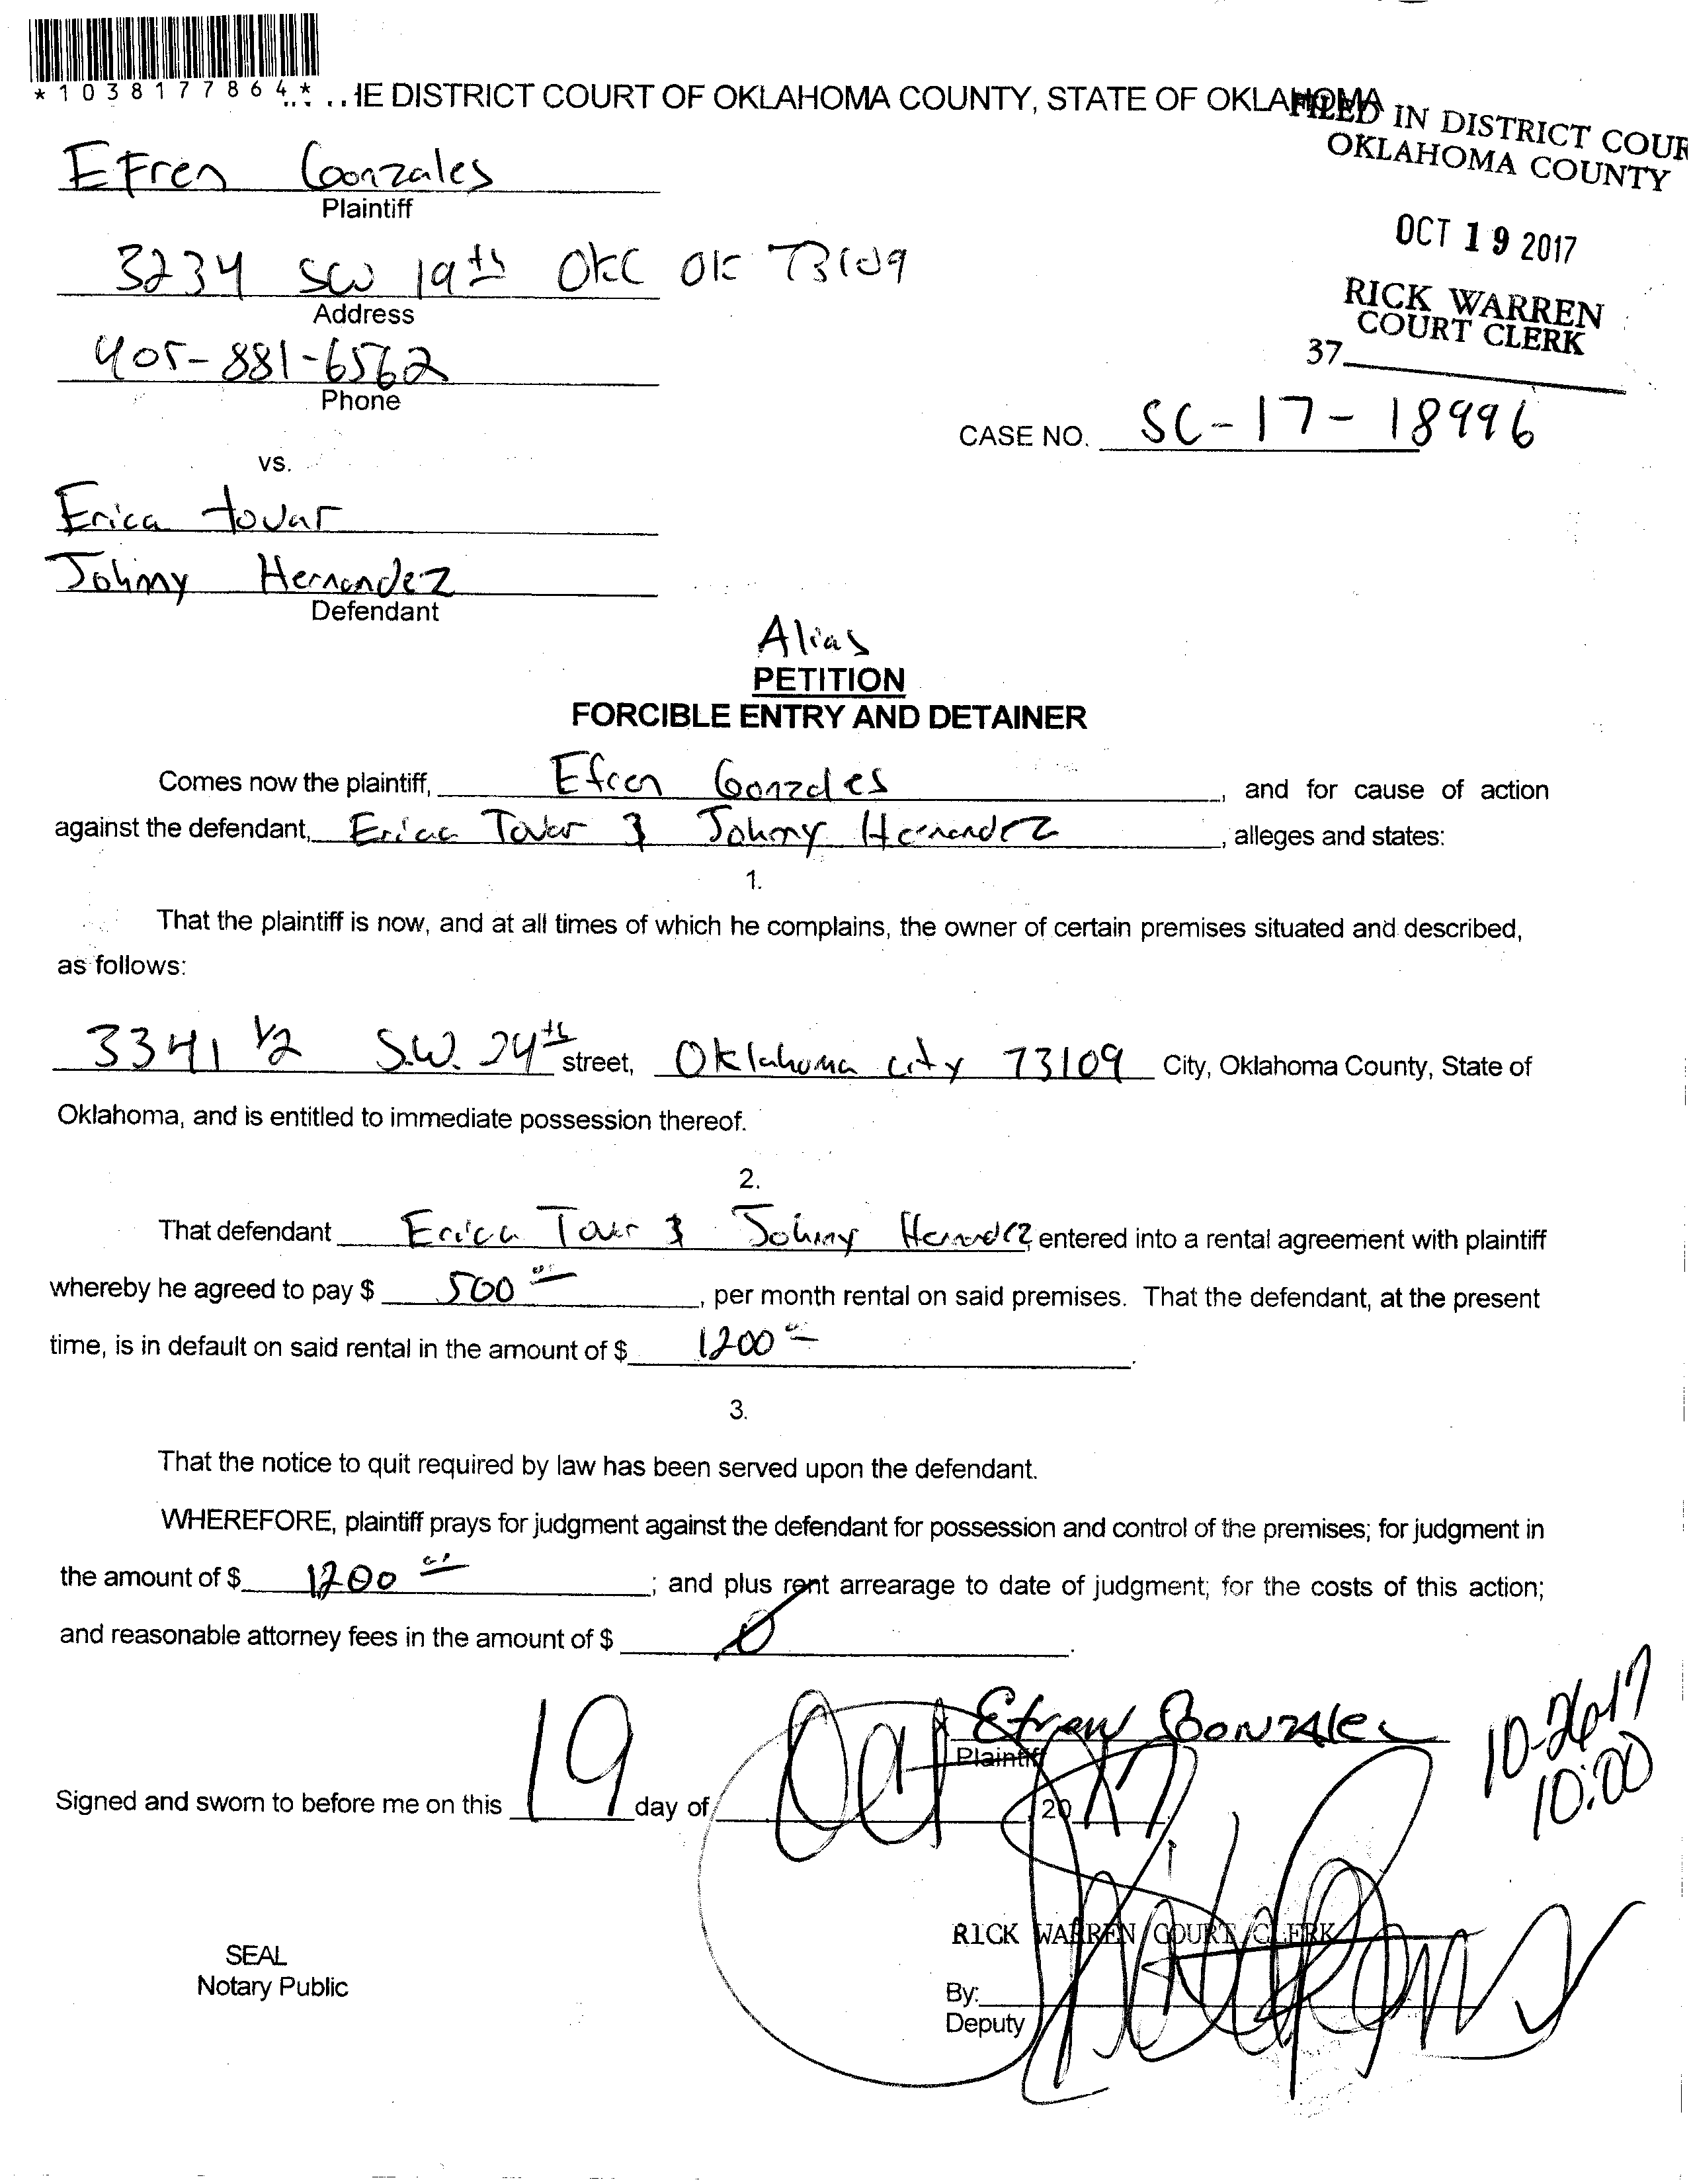 *1038177864*
..IE DISTRICT COURT OF OKLAHOMA COUNTY, STATE OF OKLAHOMA
FILED IN DISTRICT COUR
OKLAHOMA COUNTY
Efren Gonzales
Plaintiff
OCT 19 2017
3234 SW 19th OKC OK 73109
Address
RICK WARREN
COURT CLERK
37
405-881-6562
Phone
CASE NO. SC-17-18996
vs.
Erica tovar
Johnny Hernandez
Defendant
Alias
PETITION
FORCIBLE ENTRY AND DETAINER
Comes now the plaintiff, Efren Gonzales, and for cause of action
against the defendant, Erica Tovar & Johnny Hernandez, alleges and states:
1.
That the plaintiff is now, and at all times of which he complains, the owner of certain premises situated and described,
as follows:
3341 1/2 S.W. 24th street, Oklahoma city 73109 City, Oklahoma County, State of
Oklahoma, and is entitled to immediate possession thereof.
2.
That defendant Erica Tovar & Johnny Hernandez, entered into a rental agreement with plaintiff
whereby he agreed to pay $ 500 00, per month rental on said premises. That the defendant, at the present
time, is in default on said rental in the amount of $ 1200 00.
3.
That the notice to quit required by law has been served upon the defendant.
WHEREFORE, plaintiff prays for judgment against the defendant for possession and control of the premises; for judgment in
the amount of $ 1200 00; and plus rent arrearage to date of judgment; for the costs of this action;
and reasonable attorney fees in the amount of $ 0.
x Efren Gonzalec
Plaintiff
10-26-17
10:00
Signed and sworn to before me on this 19 day of Oct, 20 17
RICK WARREN COURT CLERK
SEAL
Notary Public
By:
Deputy